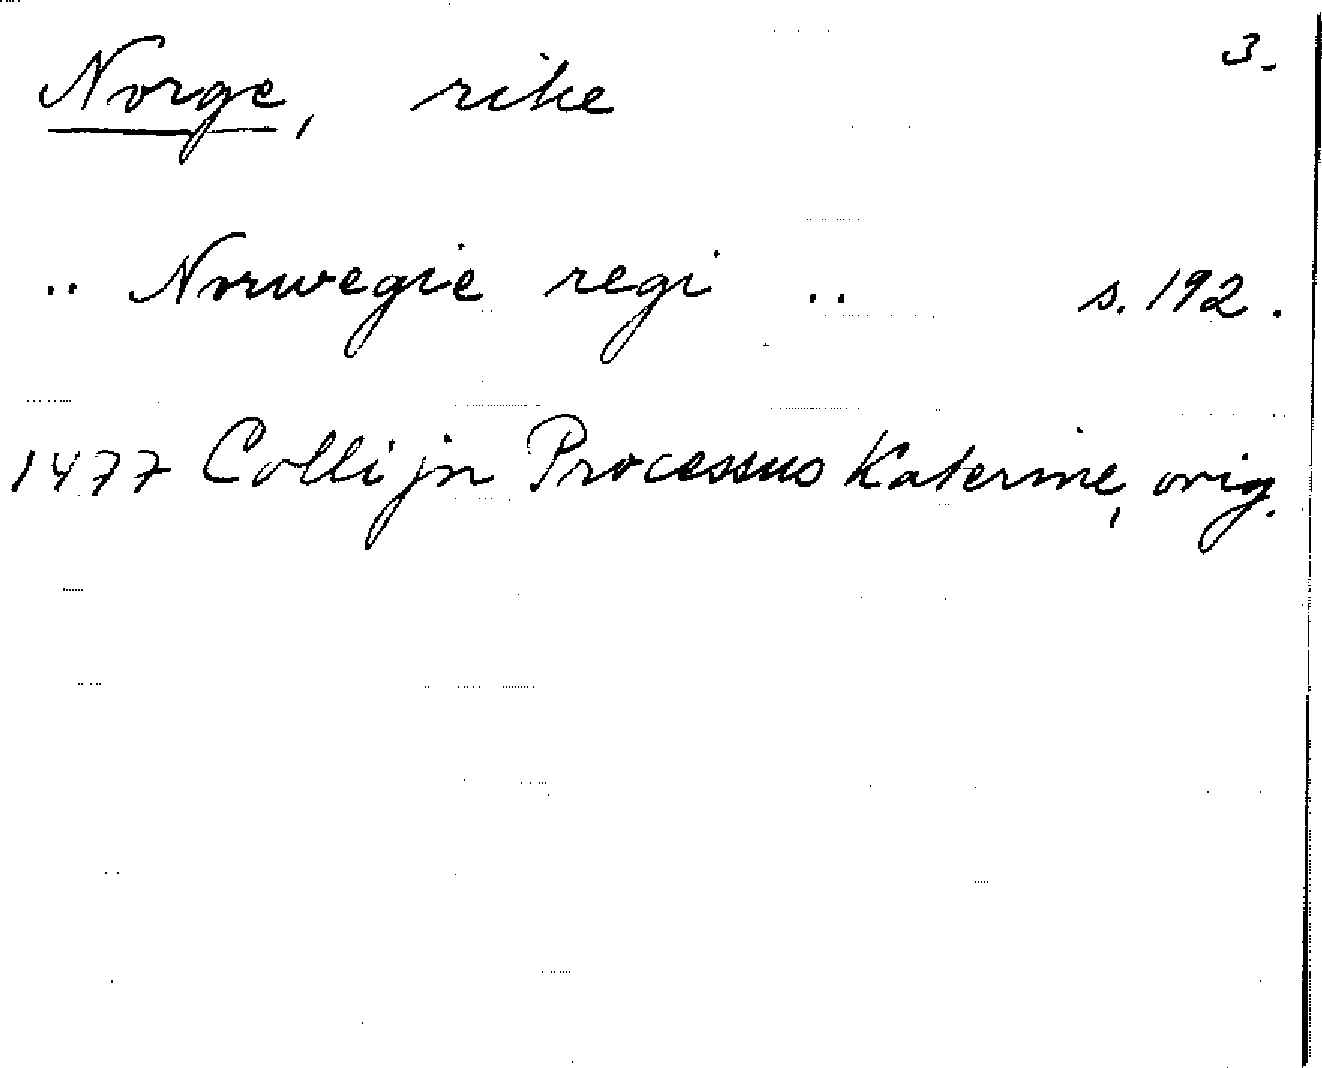 Norge, rike 3.
.. Norwegie regi .. s. 192.
1477 Collijn Processus Katerine, orig.